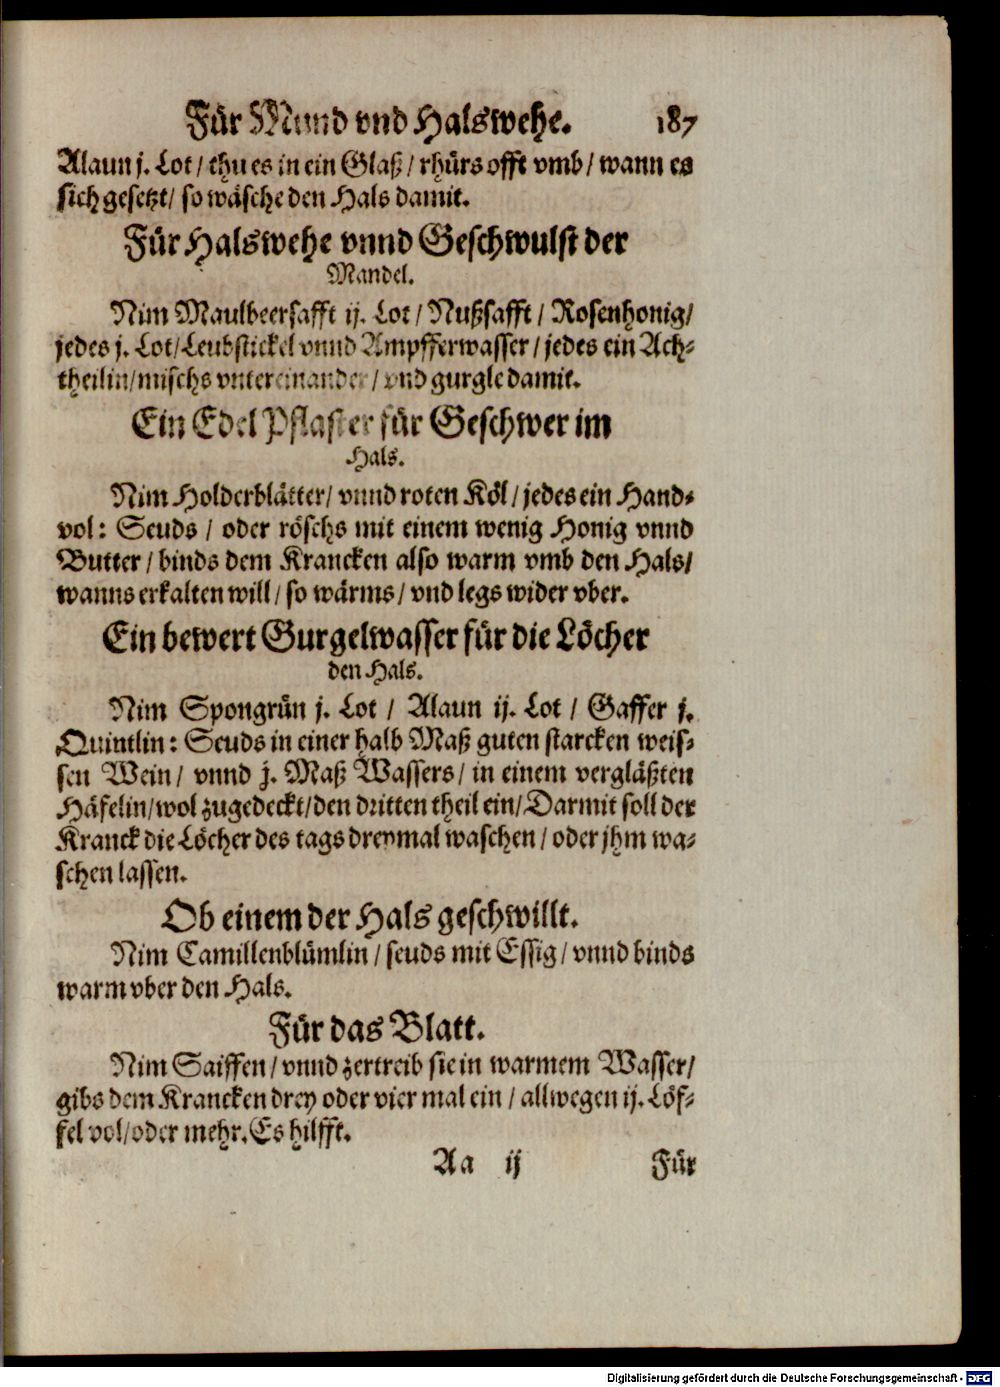 Für Mund vnd Halswehe. 187
Alaun j. Lot / thu es in ein Glaß / rhürs offt vmb / wann es
sich gesetzt / so wäsche den Hals damit.
Für Halswehe vnnd Geschwulst der
Mandel.
Nim Maulbeersafft ij. Lot / Nußsafft / Rosenhonig /
jedes j. Lot / Leubstickel vnnd Ampfferwasser / jedes ein Ach⸗
theilin / mischs vntereinander / vnd gurgle damit.
Ein Edel Pflaster für Geschwer im
Hals.
Nim Holderblätter / vnnd roten Köl / jedes ein Hand⸗
vol: Seuds / oder röschs mit einem wenig Honig vnnd
Butter / binds dem Krancken also warm vmb den Hals /
wanns erkalten will / so wärms / vnd legs wider vber.
Ein bewert Gurgelwasser für die Löcher
den Hals.
Nim Spongrün j. Lot / Alaun ij. Lot / Gaffer j.
Quintlin: Seuds in einer halb Maß guten starcken weis⸗
sen Wein / vnnd j. Maß Wassers / in einem vergläßten
Häfelin / wol zugedeckt / den dritten theil ein / Darmit soll der
Kranck die Löcher des tags dreymal waschen / oder jhm wa⸗
schen lassen.
Ob einem der Hals geschwillt.
Nim Camillenblümlin / seuds mit Essig / vnnd binds
warm vber den Hals.
Für das Blatt.
Nim Saiffen / vnnd zertreib sie in warmem Wasser /
gibs dem Krancken drey oder vier mal ein / allwegen ij. Löf⸗
fel vol / oder mehr. Es hilfft.
Aa ij Für
Digitalisierung gefördert durch die Deutsche Forschungsgemeinschaft - DFG